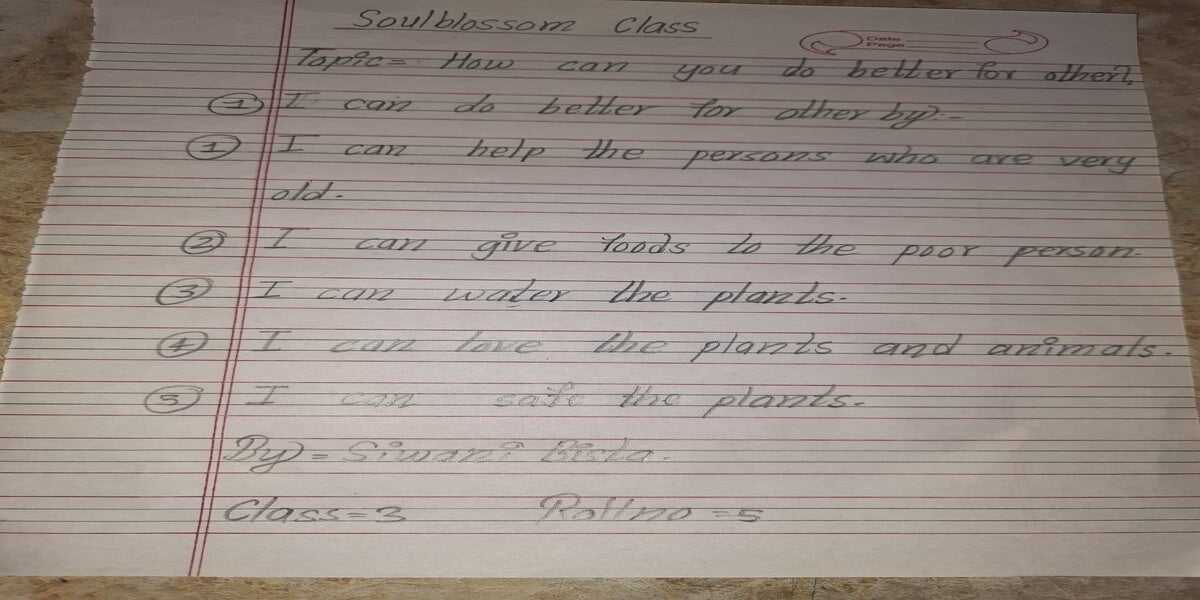 Soulblossom Class
Date
Page
Topic= How can you do better for other?
① I can do better for other by:-
① I can help the persons who are very
old.
② I can give foods to the poor person.
③ I can water the plants.
④ I can love the plants and animals.
⑤ I can safe the plants.
By= Siwani Bista.
Class=3 Rollno=5